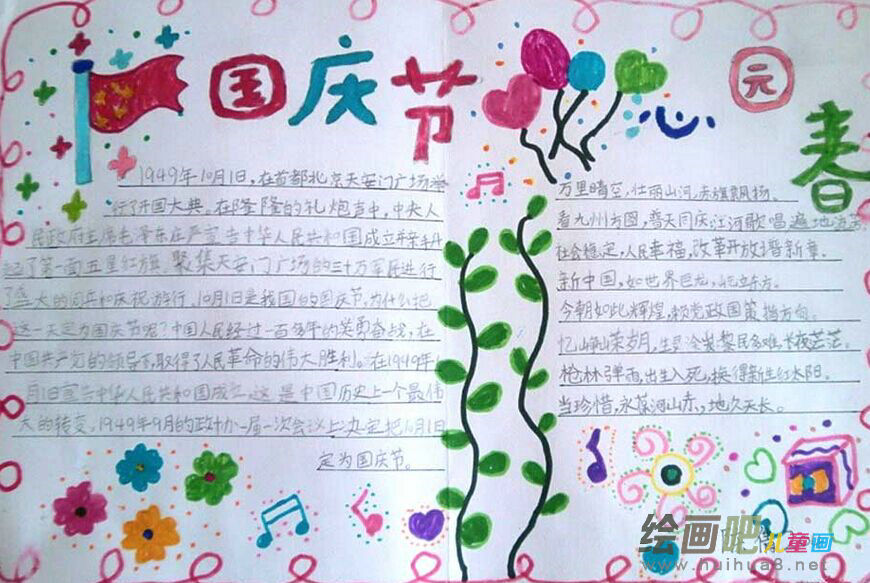 国庆节
1949年10月1日，在首都北京天安门广场举
行了开国大典。在隆隆的礼炮声中，中央人
民政府主席毛泽东庄严宣告中华人民共和国成立并亲手升
起了第一面五星红旗。聚集天安门广场的三十万军民进行
了盛大的阅兵和庆祝游行。10月1日是我国的国庆节，为什么把
这一天定为国庆节呢？中国人民经过一百多年的英勇奋战，在
中国共产党的领导下，取得了人民革命的伟大胜利。在1949年1
月1日宣告中华人民共和国成立，这是中国历史上一个最伟
大的转变，1949年9月的政协一届一次会议上决定把10月1日
定为国庆节。
心园
春
万里晴空，壮丽山河，赤旗飘扬。
看九州方圆，普天同庆，江河歌唱遍地
社会稳定，人民幸福，改革开放谱新章。
新中国，如世界巨龙，屹立东方。
今朝如此辉煌，赖党政国策指方向。
忆峥嵘岁月，生灵涂炭，黎民多难，长夜茫茫。
枪林弹雨，出生入死，换得新生红太阳。
当珍惜，永葆河山赤，地久天长。
绘画吧儿童画
www.huihua8.net